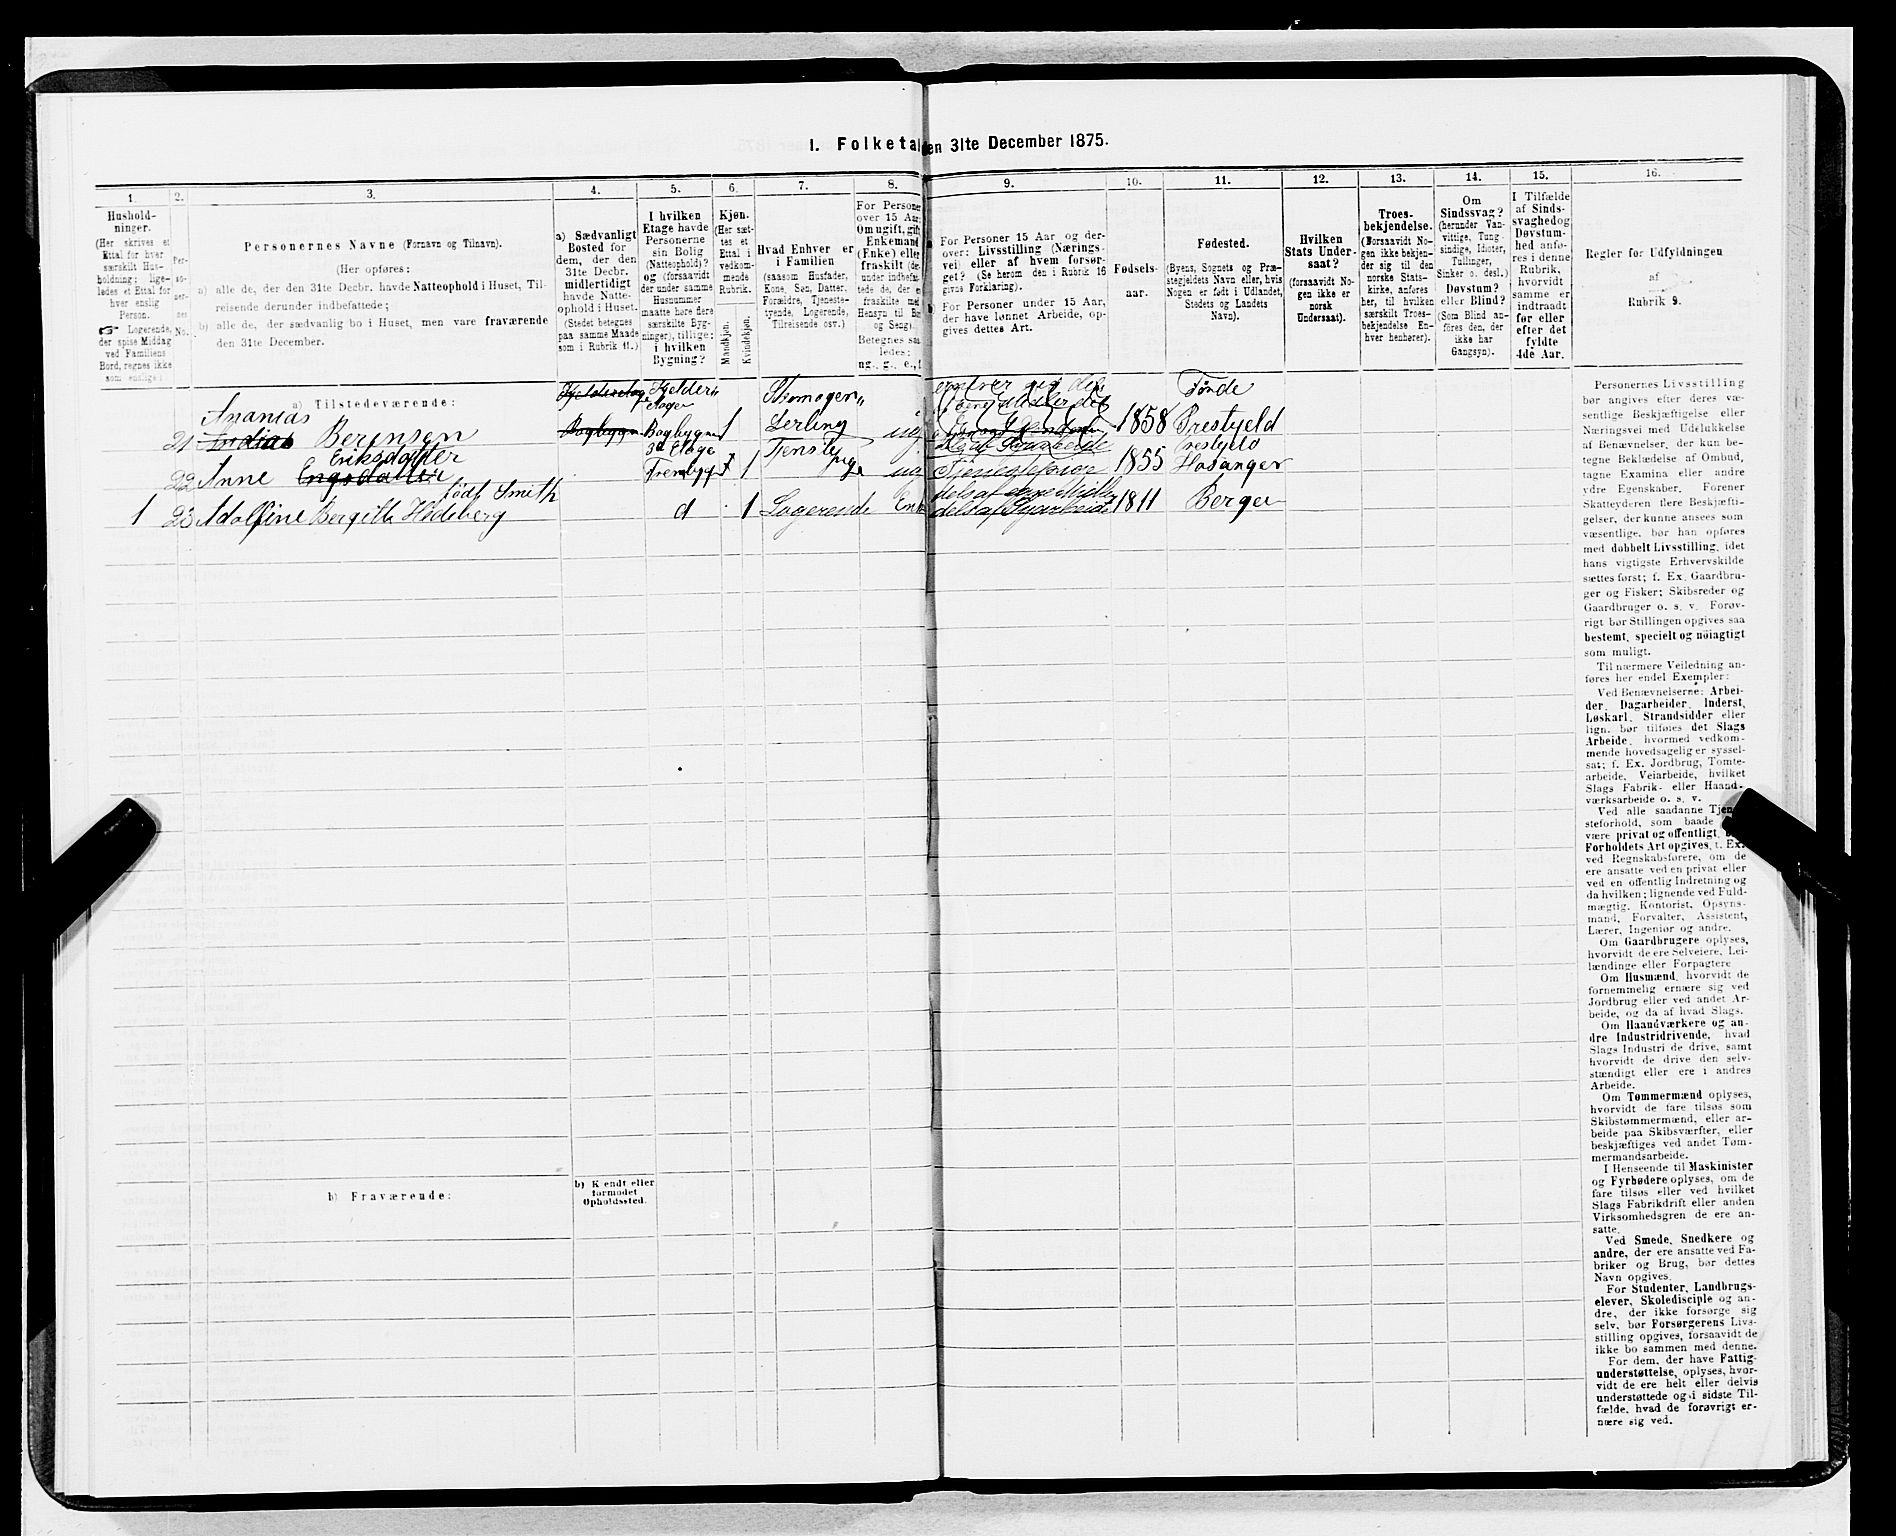 I. Folketal
en 31te December 1875.
1.
2.
3.
4.
5.
6.
7.
8.
9.
10.
11.
12.
13.
14.
15.
16.
Hushold-
ninger.
(Her skrives et
Ettal for hver
særskilt Hus-
holdning; lige-
ledes et Ettal for
hver enslig
Person.
☞ Logerende,
der spise Middag
ved Familiens
Bord, regnes ikke
som enslige.)
Per-
so-
ner-
nes
No.
Personernes Navne (Fornavn og Tilnavn).
(Her opføres:
a) alle de, der den 31te Decbr. havde Natteophold i Huset, Til-
reisende derunder indbefattede;
b) alle de, der sædvanlig bo i Huset, men vare fraværende
den 31te December.
a) Sædvanligt
Bosted for
dem, der den
31te Decbr.
midlertidigt
havde Natte-
ophold i Huset.
(Stedet betegnes
paa samme Maade
som i Rubrik 11.)
I hvilken
Etage havde
Personerne
sin Bolig
(Natteophold)?
og (forsaavidt
der under samme
Husnummer
maatte høre flere
særskilte Byg-
ninger), tillige:
i hvilken
Bygning?
Kjøn.
(Her sæt-
tes et
Ettal i
vedkom-
mende
Rubrik.
Mandkjøn.
Kvindekjøn.
Hvad Enhver er
i Familien
(saasom Husfader,
Kone, Søn, Datter.
Forældre, Tjeneste-
tyende, Logerende,
Tilreisende osv.)
For Personer
over 15 Aar:
Om ugift, gift,
Enkemand
(Enke) eller
fraskilt (der-
under indbefat-
tede de, der er
fraskilte med
Hensyn til Bo
og Seng).
Betegnes saa-
ledes:
ug., g., e., f
For Personer 15 Aar og der-
over: Livsstilling (Nærings-
vei) eller af hvem forsør-
get? (Se herom den i Rubrik 16
givne Forklaring).
b) For Personer under 15 Aar,
der have lønnet Arbeide, op-
gives dettes Art.
Fødsels-
aar.
Fødested.
(Byens, Sognets og Præ-
stegjeldets Navn eller, hvis
Nogen er født i Udlandet,
Stedets og Landets
Navn).
Hvilken
Stats Under-
saat?
(forsaavidt No-
gen ikke er
norsk
Undersaat).
Troes-
bekjendelse.
(Forsaavidt No-
gen ikke bekjen-
der sig til den
norske Stats-
kirke, anføres
her, til hvilken
særskilt Troes-
bekjendelse En-
hver henhører).
Om
Sindssvag?
(herunder Van-
vittige, Tung-
sindige, Idioter,
Tullinger,
Sinker o. desl.)
Døvstum?
eller Blind?
(Som Blind an-
føres den, der
ikke har
Gangsyn).
I Tilfælde
af Sinds-
svaghed og
Døvstum-
hed anfø-
res i denne
Rubrik,
hvorvidt
samme er
indtraadt
før eller
efter det
fyldte
4de Aar.
Regler for Udfyldningen
af
Rubrik 9.
a) Tilstedeværende:
Ananias
21 Berensen
Kjelderetage
Bagbygn
Kjelder
Etage
Bagbygn 1
Skomager
Lerling
ug.
1858
Tønde
Prestgjeld
22 Anne
Eriksdatter
3d Etage
1
ug
Tjenestepige
1855
Prestgjeld
Hosanger
1 23 Adolfine Bergitte Hedeberg
født Smith
d 1 Logerende Enk
dels af Syarbeide
1811 Bergen
Personernes Livsstilling
bør angives efter deres væ-
sentlige Beskjæftigelse eller
Næringsvei med Udelukkelse
af Benævnelser, der kun be-
tegne Beklædelse af Ombud,
tagne Examina eller andre
ydre Egenskaber. Forener
Skatteyderen flere Beskjæfti-
gelser, der kunne ansees som
væsentlige, bør han opføres
med dobbelt Livsstilling, idet
hans vigtigste Erhvervskilde
sættes først; f. Ex. Gaardbru-
ger og Fisker; Skibsreder og
Gaardbruger o. s. v. Forøv-
rigt bør Stillingen opgives saa
bestemt, specielt og nöiagtigt
som muligt.
Til nærmere Veiledning an-
føres her endel Exempler:
Ved Benævnelserne: Arbei-
der, Dagarbeider, Inderst,
Løskarl, Strandsidder eller
lign. bør tilføies det Slags
Arbeide, hvormed vedkom-
mende hovedsagelig er syssel-
sat; f. Ex. Jordbrug, Tomte-
arbeide, Veiarbeide, hvilket
Slags Fabrik- eller Haand-
værksarbeide o. s. v.
Ved alle saadanne Tjene-
steforhold, som baade
være privat og offentligt,
Forholdets Art opgives, f. Ex.
ved Regnskabsførere, om de
ere ansatte ved en privat eller
ved en offentlig Indretning og
da hvilken; lignende ved Fuld-
mægtig, Kontorist, Opsyns-
mand, Forvalter, Assistent,
Lærer, Ingeniør og andre.
Om Gaardbrugere oplyses,
hvorvidt de ere Selveiere, Lei-
lændinge eller Forpagtere
Om Husmænd, hvorvidt de
fornemmelig ernære sig ved
Jordbrug eller ved andet Ar-
beide, og da af hvad Slags.
Om Haandværkere og an-
dre Industridrivende, hvad
Slags Industri de drive, samt
hvorvidt de drive den selv-
stændigt eller ere i andres
Arbeide.
Om Tømmermænd oplyses,
hvorvidt de fare tilsøs som
Skibstømmermænd, eller ar-
beide paa Skibsværfter, eller
beskjæftiges ved andet Tøm-
mermandsarbeide.
I Henseende til Maskinister
og Fyrbødere oplyses, om de
fare tilsøs eller ved hvilket
Slags Fabrikdrift eller anden
Virksomhedsgren de ere an-
satte.
Ved Smede, Snedkere og
andre, der ere ansatte ved Fa-
briker og Brug, bør dettes
Navn opgives.
For Studenter, Landbrugs-
elever, Skoledisciple og an-
dre, der ikke forsørge sig
selv, bør Forsørgerens Livs-
stilling opgives, forsaavidt de
ikke bo sammen med denne.
For dem, der have Fattig-
understøttelse, oplyses, hvor-
vidt de ere helt eller delvis
understøttede og i sidste Til-
fælde, hvad de forøvrigt er-
nære sig ved.
b) Fraværende:
b) Kjendt eller
formodet
Opholdssted.